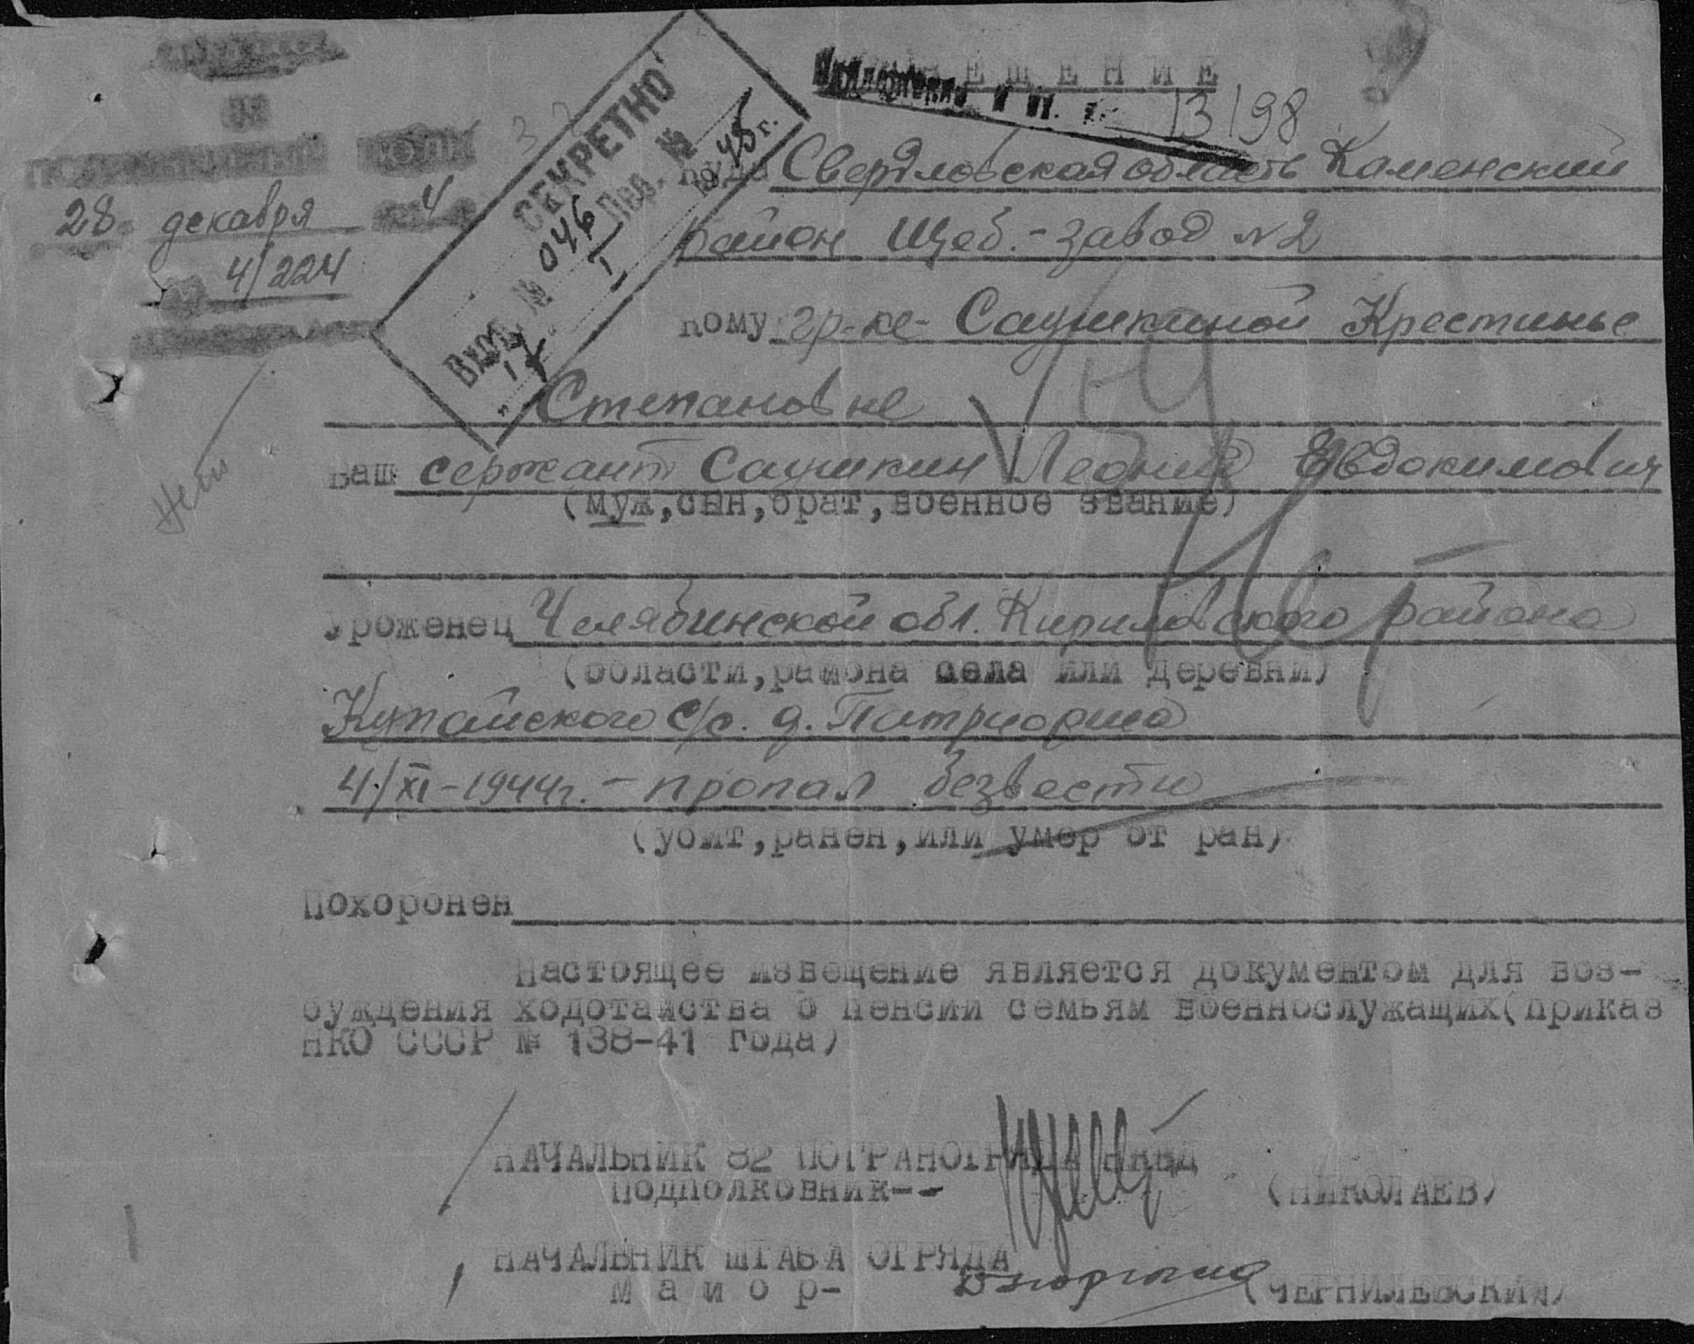 82
ПОГРАНИЧНЫЙ ПОЛК
28 декабря 4
4/224
СЕКРЕТНО
Вход. № 046 Пер. №
" 17 " I 1945 г.
ИЗВЕЩЕНИЕ
13198
Куда Свердловская область Каменский
район Щеб.-завод №2
Кому гр-ке- Саушкиной Крестинье
Степановне
Ваш сержант Саушкин Леонид Евдокимович
(муж,сын,брат,военное звание)
Уроженец Челябинской обл. Кировского района
(области,района села или деревни)
Кутайского с/с. д.
4/XI-1944г. - пропал безвести
(убит,ранен,или умер от ран)
Похоронен
Настоящее извещение является документом для воз-
буждения ходотайства о пенсии семьям военнослужащих(приказ
НКО СССР № 138-41 года)
Нет
НАЧАЛЬНИК 82 ПОГРАНОТРЯДА НКВД
Подполковник--
(НИКОЛАЕВ)
НАЧАЛЬНИК ШТАБА ОТРЯДА
М а й о р-
(ЧЕРНИЛЕВСКИЙ)